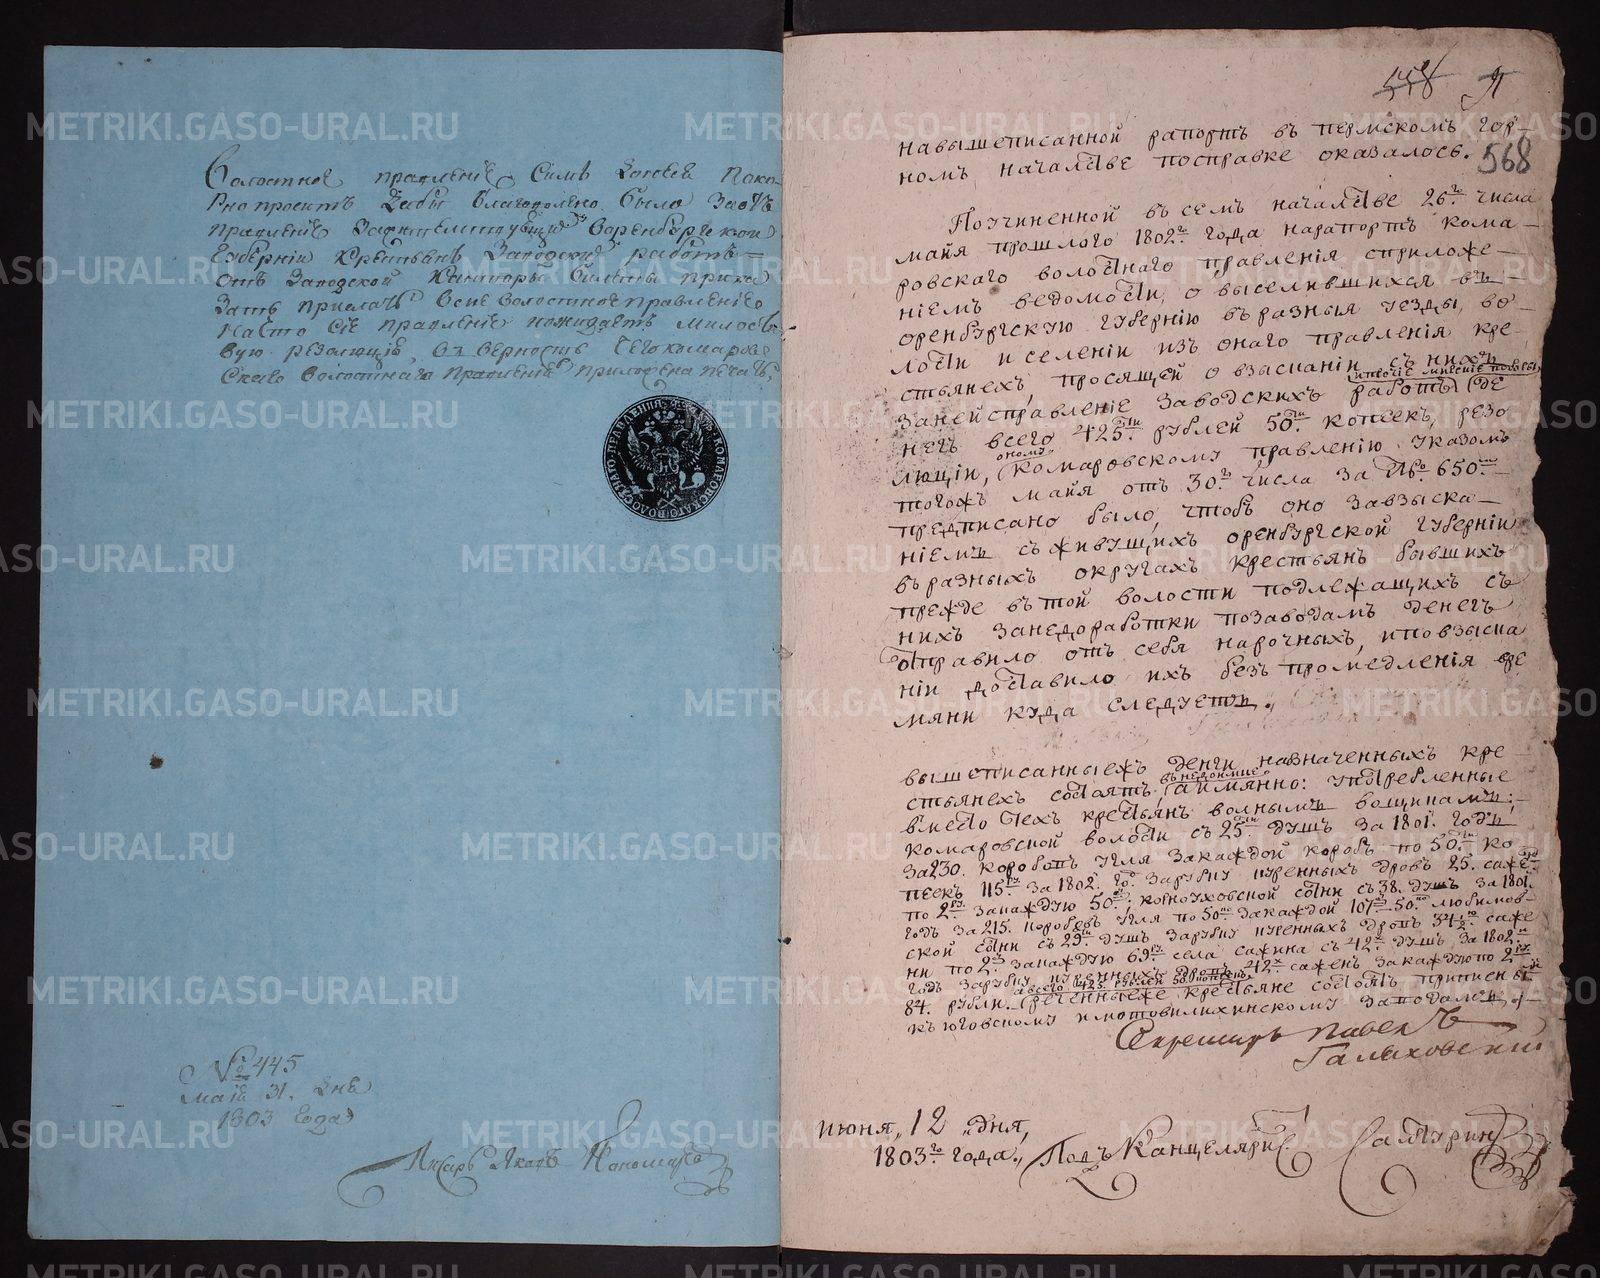 Волостное правление Симъ Господа Поко
рно проситъ Дабы благоволено было Заонъ
правление
Губернии Крестьянъ Заводской работъ
отъ Заводской Канторы билеты прика
зать прислать Всие волостное правление
На что Сие правление ожидаетъ милости
вую резолюцию, Въ верность Сего комаров
Скаго волостнаго правления приложена печать,
№ 445
маия 31. дня
1803 года
Писарь Яковъ Пономаревъ
568
навышеписанной рапортъ въ пермскомъ гор-
номъ началстве посправке оказалось.
Поучиненной въ семъ началстве 26го числа
майя прошлого 1802го года нарапортъ кома-
ровскаго волостнаго правления, сприложе-
ниемъ ведомости, о выселившихся въ
оренбургскую губернию въ разныя уезды, во
лости и селении изъ онаго правления кре-
стьянехъ, просящей о взыскании съ нихъ
за неисправление заводскихъ работъ де
негъ всего 425ти рублей 50ти копеек, резо
люции, оному комаровскому правлению указомъ
тогожъ майя отъ 30го числа за №о 650мъ
предписано было, чтобъ оно завзыска-
ниемъ съ живущихъ оренбургской губернии
въ разныхъ округахъ крестьян бывшихъ
прежде въ той волости подлежащихъ съ
нихъ занедоработки позаводамъ денегъ
отправило отъ себя нарочныхъ, и по взыска
нии доставило ихъ безъ промедления вре
мяни куда следуетъ.
вышеписанныежъ денги назначенныхъ кре-
стьянехъ состоятъ в недоимке, аимянно: употребленные
вместо техъ крестьян волнымъ вощикамъ;
комаровской волости съ 25ти душъ за 1801. годъ
За 230. коробовъ угля закаждой коробъ по 50ти ко
пеекъ 115ру за 1802. го зарубку куренныхъ дровъ 25. сажен
по 2ру закаждую 50ру, корноуховской сотни съ 38. душъ за 1801.
годъ за 215. коробовъ угля по 50ко закаждой 107ру 50ко любимов-
ской сотни съ 29ти душъ зарубку куренныхъ дровъ 34 1/2 саже
ни по 2ру закаждую 69ру села сажина съ 42х душъ за 1802й
годъ зарубку куренныхъ дровъ 42х сажен закаждую по 2ру
84. рубли. а всего 425 рублей 50 копеекъ, реченныеже крестьяне состоятъ приписными
къ юговскому имотовилихинскому заводамъ,
Секретарь Павелъ
Галиховский
июня, 12 дня,
1803го года., Подъ Канцелярис. Сатурин